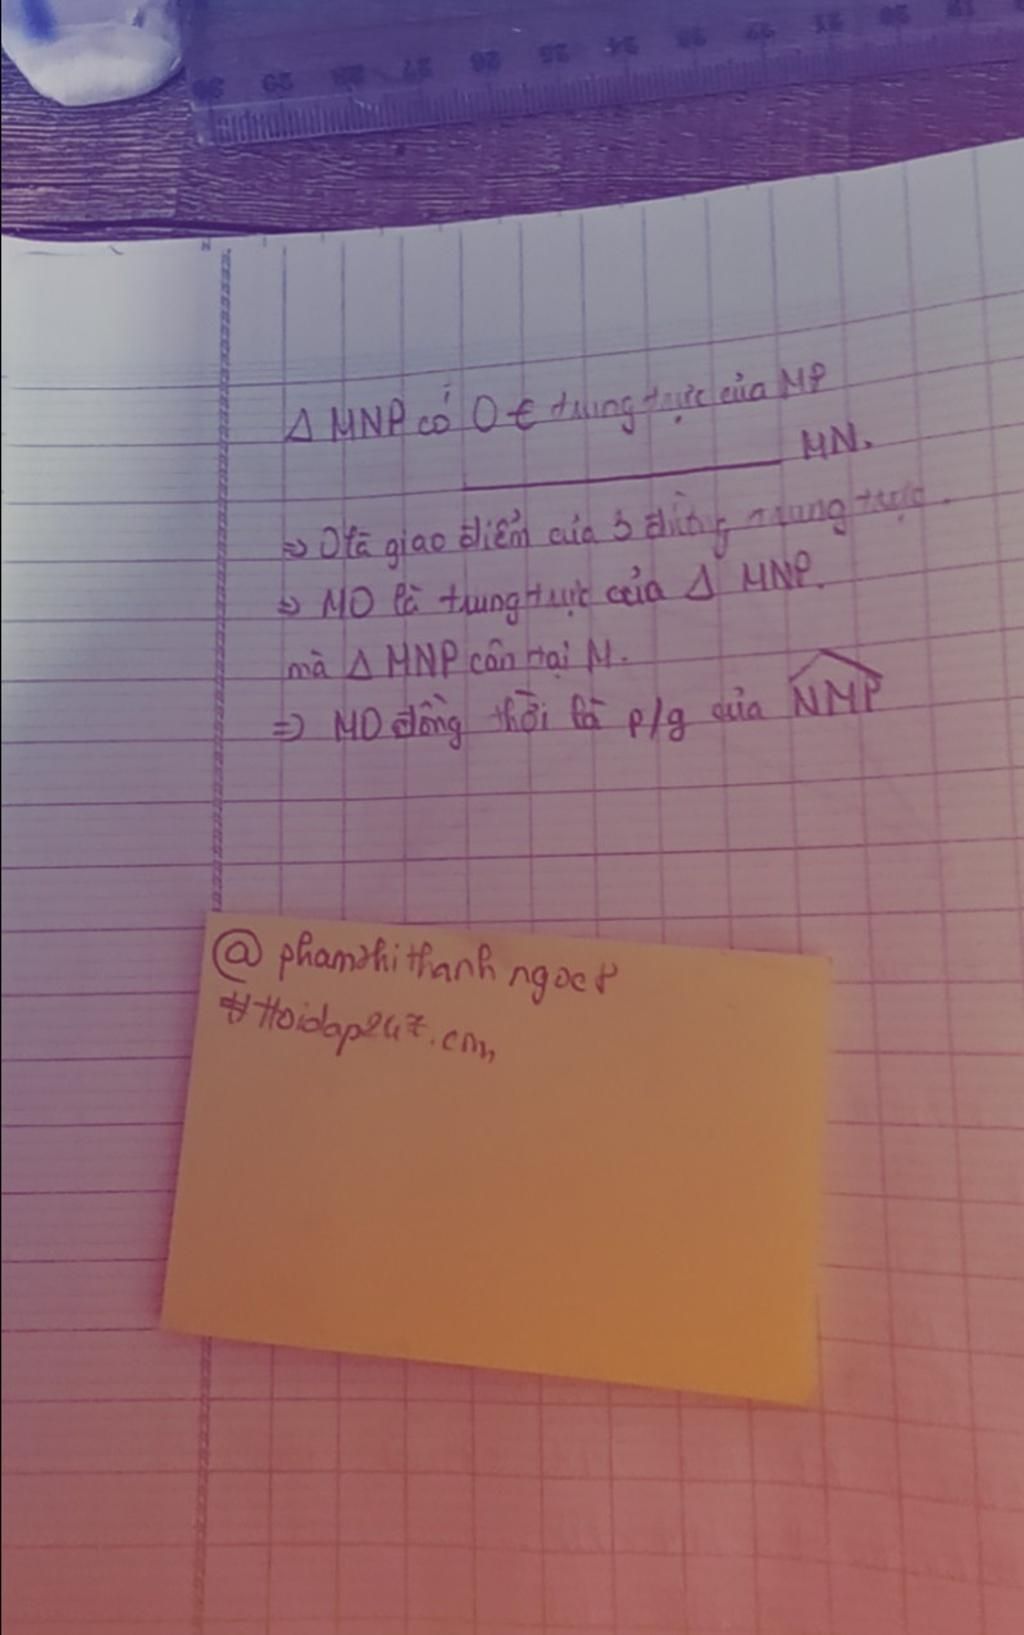 Δ MNP có O ∈ trung trực của MP
__________ MN.
=> O là giao điểm của 3 đường trung trực.
=> MO là trung trực của Δ MNP.
mà Δ MNP cân tại M.
=> MO đồng thời là p/g của NMP
@ phamthithanhngoc8
#Hoidap247.com
30 29 28 27 26 25 24 23 22 21 20 19